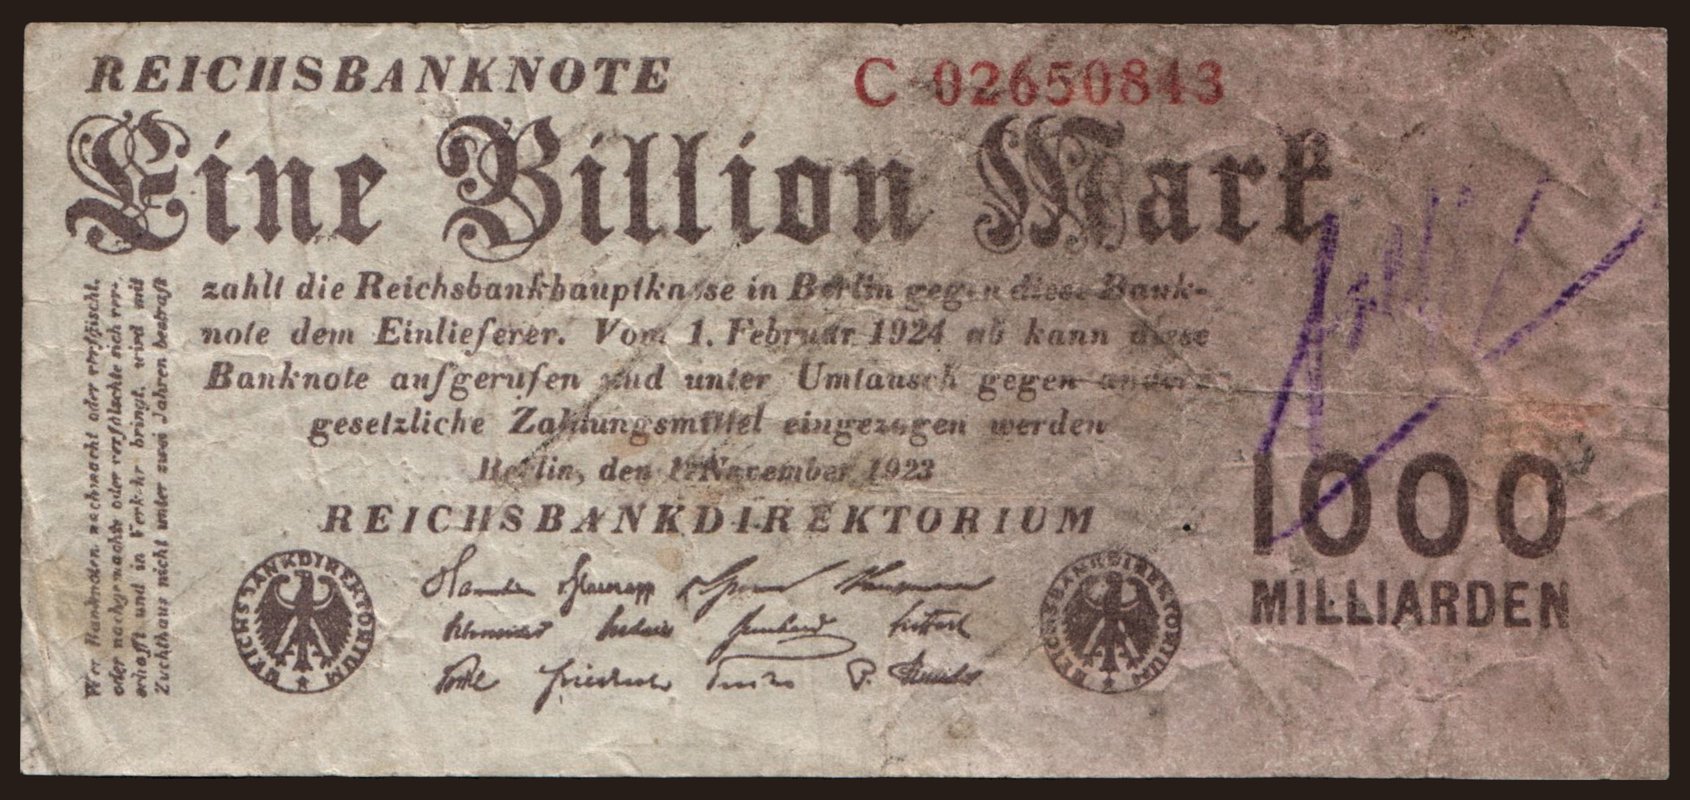 REICHSBANKNOTE
C·02650843
Eine Billion Mark
zahlt die Reichsbankhauptkasse in Berlin gegen diese Bank-
note dem Einlieferer. Vom 1. Februar 1924 ab kann diese
Banknote aufgerufen und unter Umtausch gegen andere
gesetzliche Zahlungsmittel eingezogen werden
Berlin, den 1. November 1923
REICHSBANKDIREKTORIUM
1000
MILLIARDEN
REICHSBANKDIREKTORIUM
REICHSBANKDIREKTORIUM
Wer Banknoten nachmacht oder verfälscht,
oder nachgemachte oder verfälschte sich ver-
schafft und in Verkehr bringt, wird mit
Zuchthaus nicht unter zwei Jahren bestraft